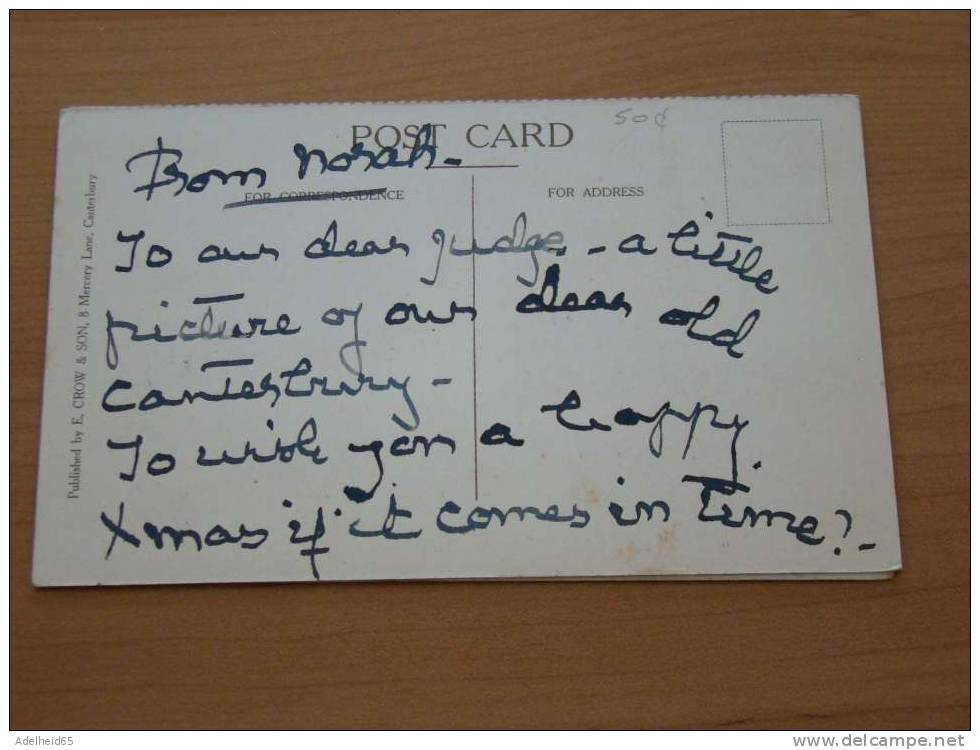 50¢
POST CARD
From Norah-
FOR CORRESPONDENCE
FOR ADDRESS
To our dear Judge - a little
picture of our dear old
Canterbury-
To wish you a happy
Xmas if it comes in time? -
Published by E. CROW & SON, 8 Mercery Lane, Canterbury
Adelheid65
www.delcampe.net